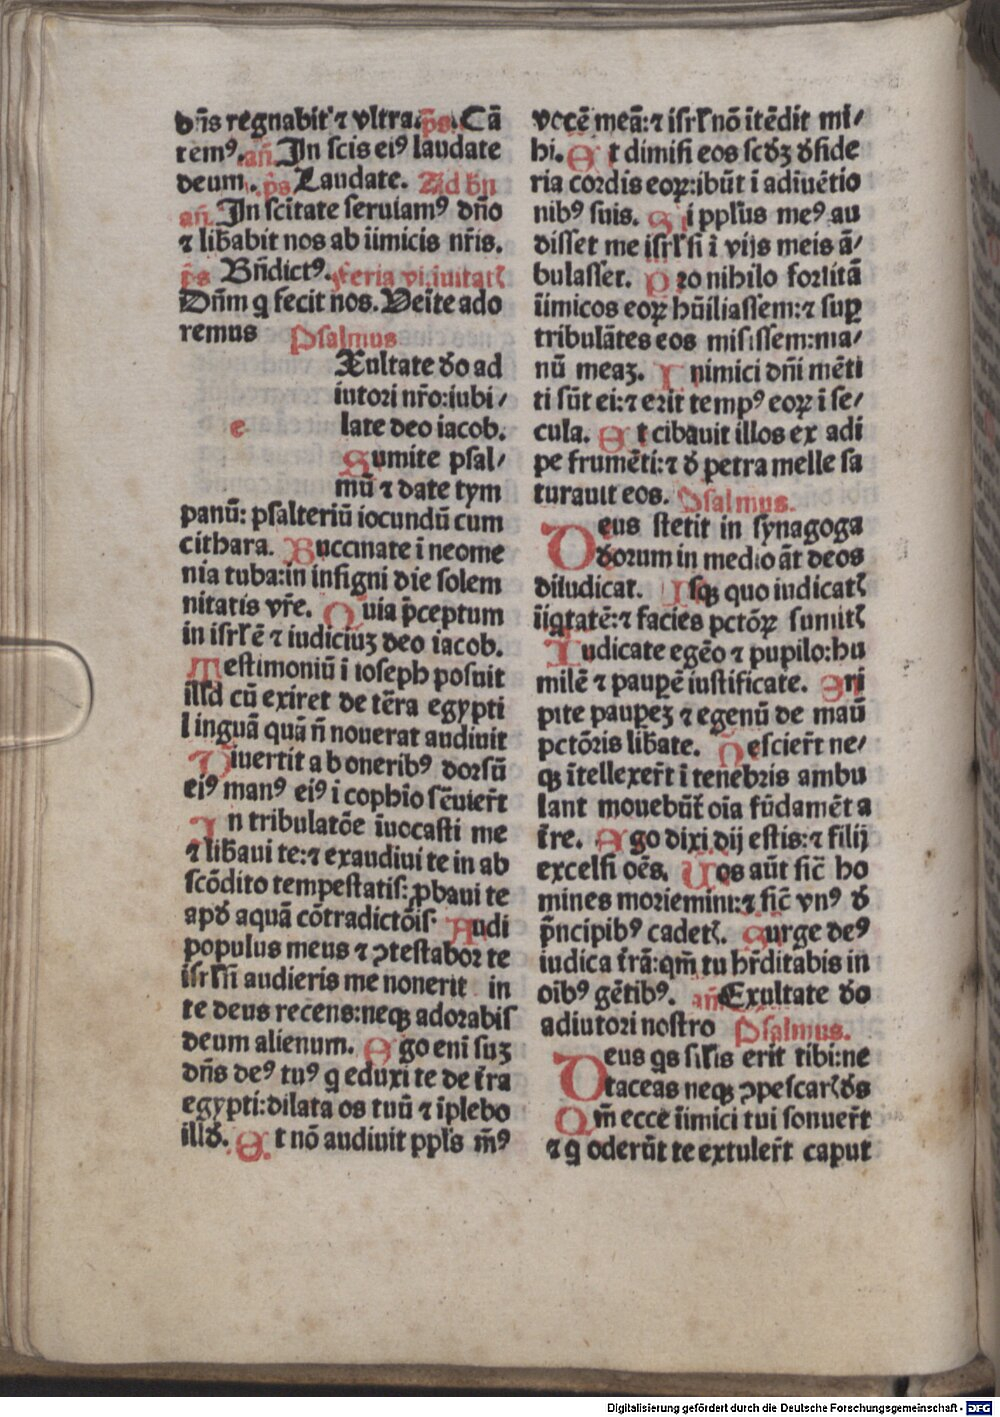 dn̄s regnabit ⁊ vltra. p̄s. Cā
temꝰ. an̄. In scis eiꝰ laudate
deum. p̄s Laudate. Ad bn̄
an̄. In scitate seruiamꝰ dn̄o
⁊ lib̄abit nos ab iīmicis nr̄is.
p̄s Bn̄dictꝰ. feria vi. īuitatꝭ
Dn̄m q fecit nos. Veīte ado
remus Psalmus
Xultate d̄o ad
iutori nr̄o: iubi⸗
e late deo iacob.
Sumite psal⸗
mū ⁊ date tym
panū: psalteriū iocundū cum
cithara. Buccinate ī neome
nia tuba: in insigni die solem
nitatis vr̄e. Quia p̄ceptum
in isrl̄ ē ⁊ iudiciuꝫ deo iacob.
Testimoniū ī ioseph posuit
illd̄ cū exiret de tēra egypti
linguā quā n̄ nouerat audiuit
Diuertit ab oneribꝰ dorsū
eiꝰ manꝰ eiꝰ ī cophīo sēuier̄t
In tribulatōe īuocasti me
⁊ lib̄aui te: ⁊ exaudiui te in ab
scōdito tempestatis: ꝓbaui te
apd̄ aquā cōtradictōis. Audi
populus meus ⁊ ꝯtestabor te
isrl̄ si audieris me non erit in
te deus recens: neqꝫ adorabis
deum alienum. Ego enī suꝫ
dn̄s deꝰ tuꝰ q eduxi te de t̄ra
egypti: dilata os tuū ⁊ īplebo
illd̄. Et nō audiuit ppl̄s m̄ꝰ
vocē meā: ⁊ isrl̄ nō ītēdit mi⸗
hi. Et dimisi eos scd̄ꝫ d̄side
ria cordis eoꝝ: ibūt ī adiuētio
nibꝰ suis. Si ppl̄us meꝰ au
disset me isrl̄ si ī vijs meis ā⸗
bulasset. Pro nihilo forsitā
iīmicos eoꝝ hūiliassem: ⁊ suꝑ
tribulātes eos misissem: ma⸗
nū meaꝫ. Inimici dn̄i mēti
ti sūt ei: ⁊ erit tempꝰ eoꝝ ī se⸗
cula. Et cibauit illos ex adi
pe frumēti: ⁊ d̄ petra melle sa
turauit eos. Psalmus.
Deus stetit in synagoga
d̄orum in medio āt deos
diiudicat. Usqꝫ quo iudicatꝭ
iīqtatē: ⁊ facies pctōꝝ sumitꝭ
Iudicate egēo ⁊ pupilo: hu
milē ⁊ pauꝑē iustificate. Eri
pite pauꝑeꝫ ⁊ egenū de maū
pctōris lib̄ate. Nescier̄t ne⸗
qꝫ ītellexer̄t ī tenebris ambu
lant mouebūt̄ oīa fūdamēta
t̄re. Ego dixi dij estis: ⁊ filij
excelsi oēs. Uos aūt sic̄ ho
mines moriemini: ⁊ sic̄ vnꝰ d̄
p̄ncipibꝰ cadetꝭ. Surge deꝰ
iudica t̄rā: qm̄ tu hr̄ditabis in
oībꝰ gētibꝰ. an̄ Exultate d̄o
adiutori nostro Psalmus.
Deus qs sil̄is erit tibi: ne
taceas neqꝫ ꝯpescarꝭ d̄s
Qm̄ ecce iīmici tui sonuer̄t
⁊ q oderūt te extuler̄t caput
Digitalisierung gefördert durch die Deutsche Forschungsgemeinschaft - DFG